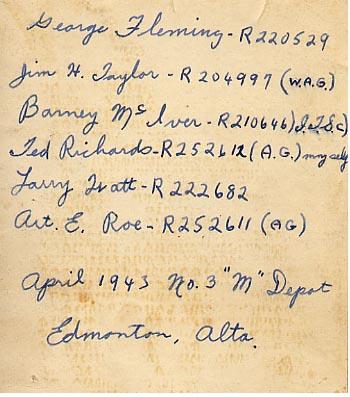 George Fleming - R220529
Jim H. Taylor - R204997 (W.A.G.)
Barney McIver - R210646)
Ted Richards - R252612 (A.G.) myself
Larry Watt - R222682
Art. E. Roe - R252611 (AG)
April 1943 No. 3 "M" Depot
Edmonton, Alta.